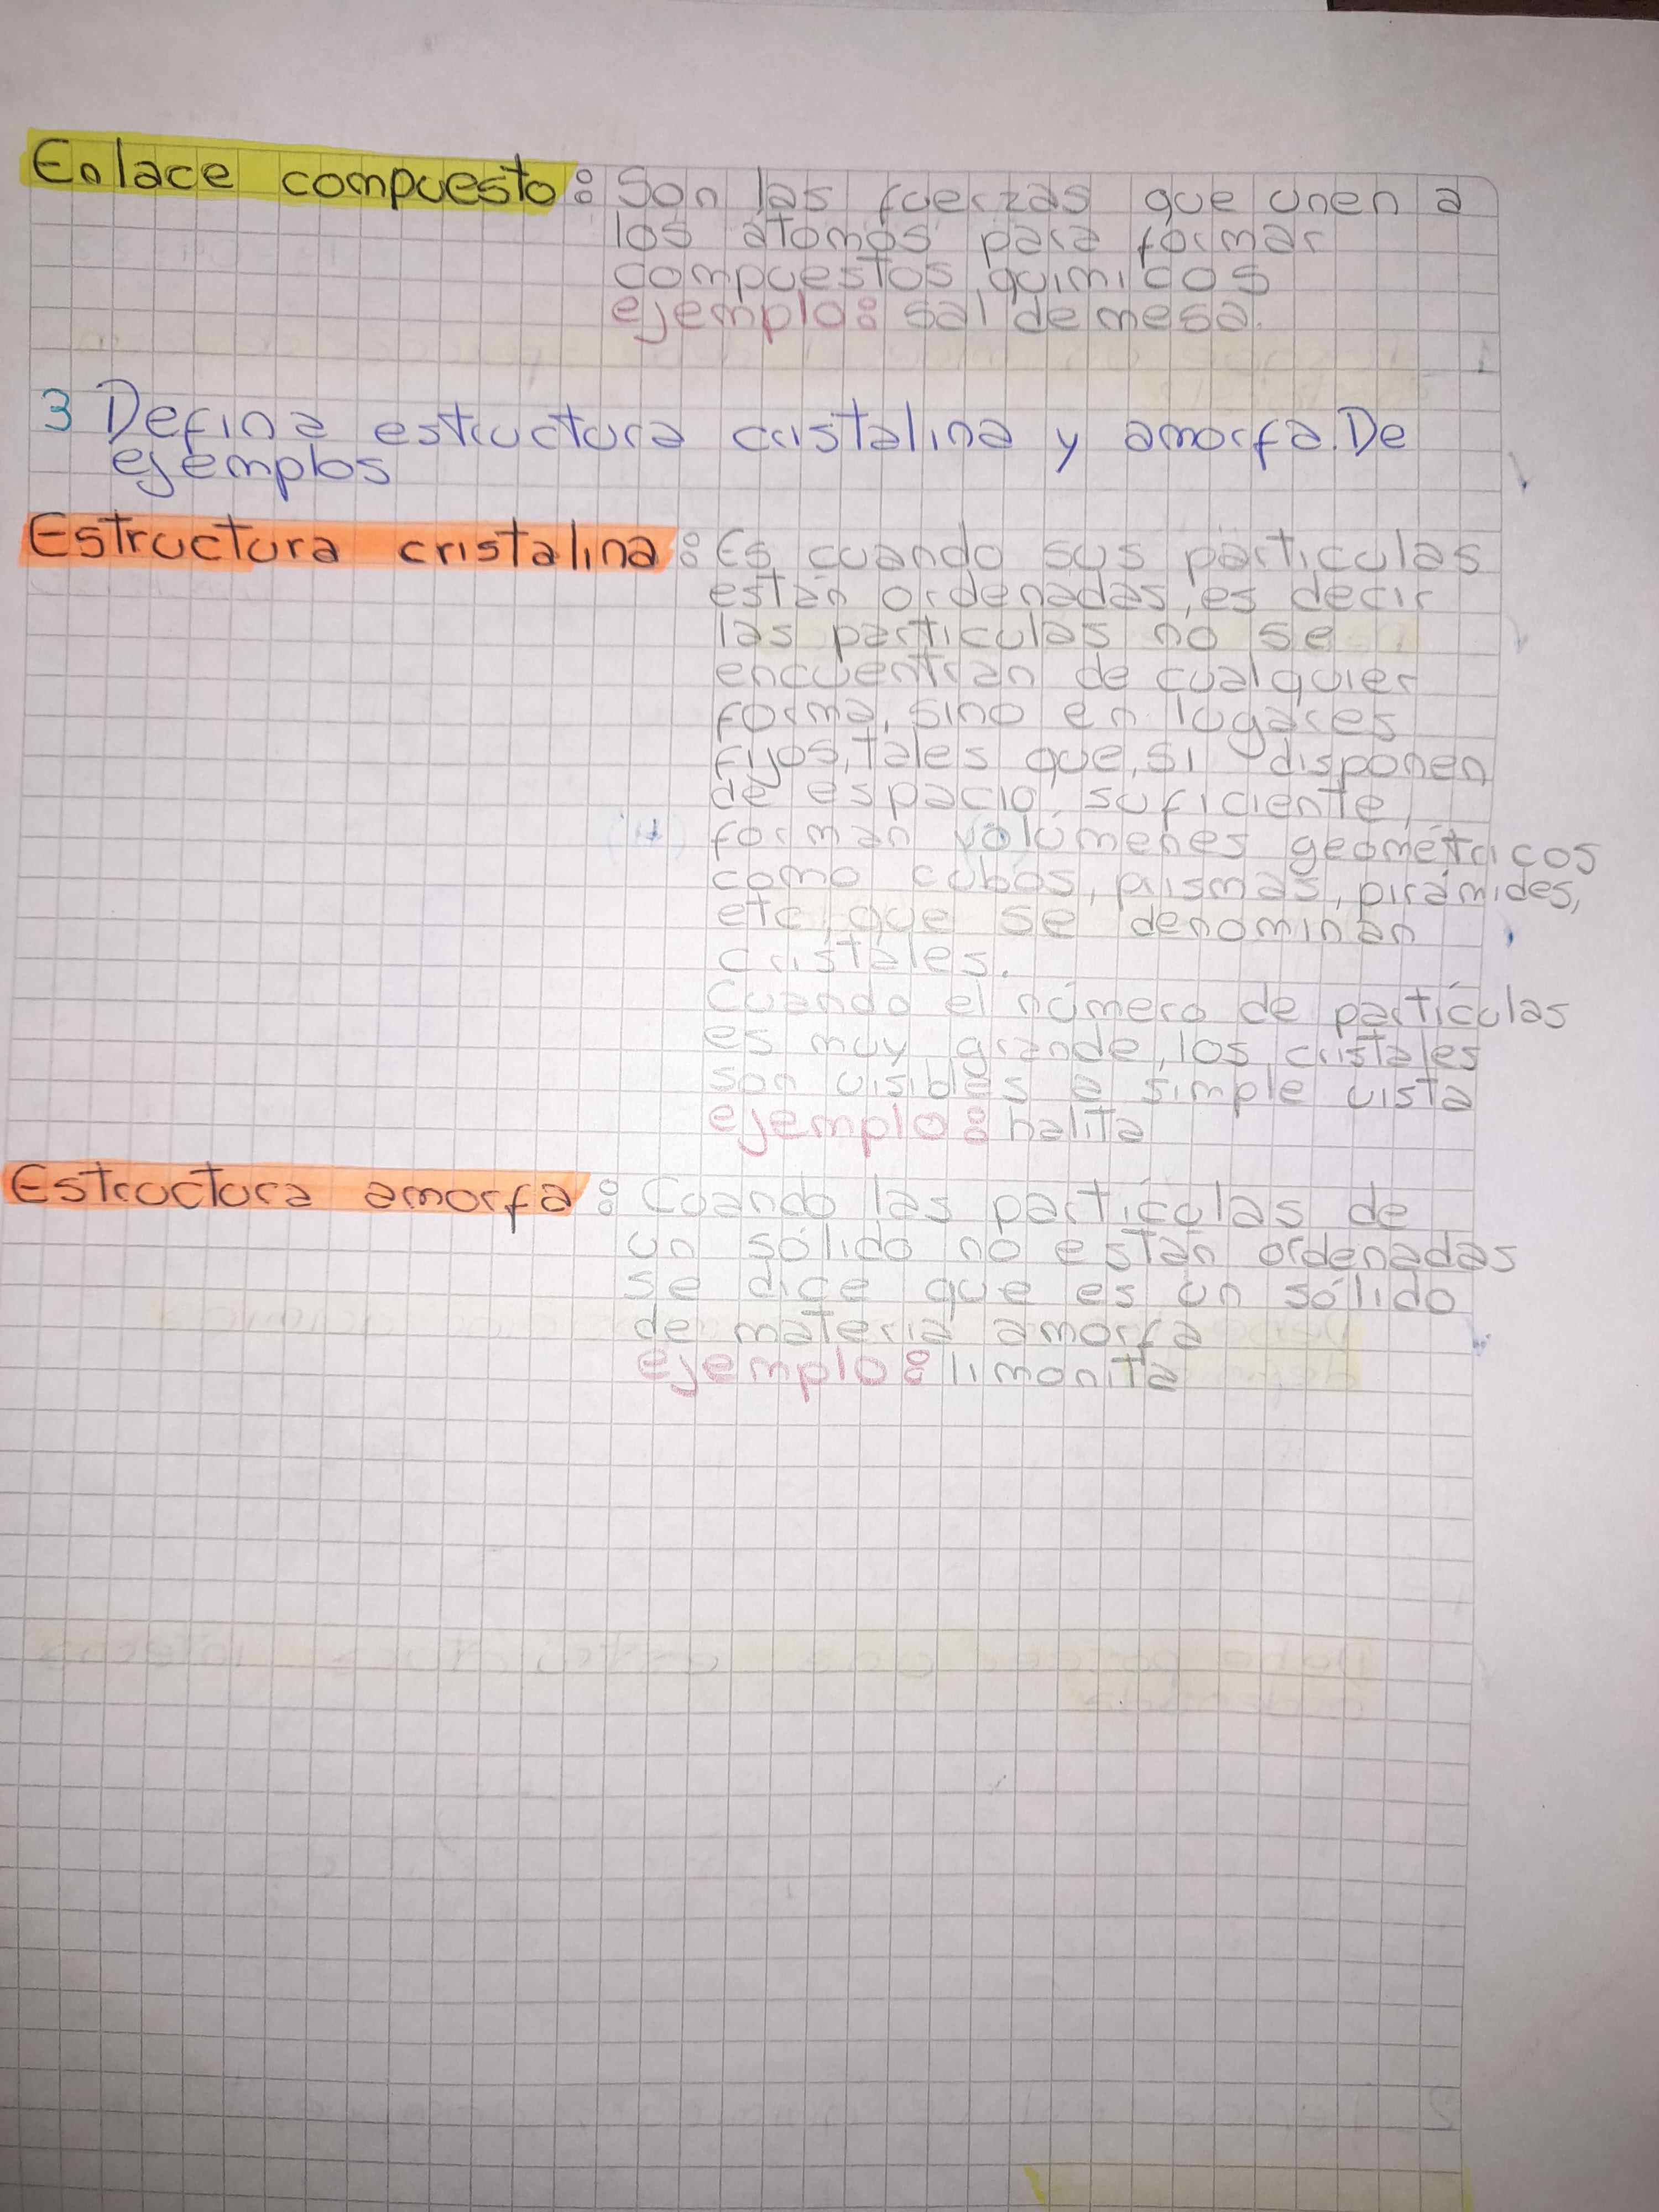 Enlace compuesto: Son las fuerzas que unen a
los átomos para formar
compuestos químicos
ejemplo: sal de mesa.
3 Defina estructura cristalina y amorfa. De
ejemplos
Estructura cristalina: Es cuando sus particulas
están ordenadas, es decir
las particulas no se
encuentran de cualquier
forma, sino en lugares
fijos, tales que, si disponen
de espacio suficiente,
forman volúmenes geométricos
como cubos, prismas, pirámides,
etc, que se denominan
cristales.
Cuando el número de partículas
es muy grande, los cristales
son visibles a simple vista
ejemplo: halita
Estructura amorfa: Cuando las partículas de
un sólido no están ordenadas
se dice que es un sólido
de materia amorfa
ejemplo: limonita